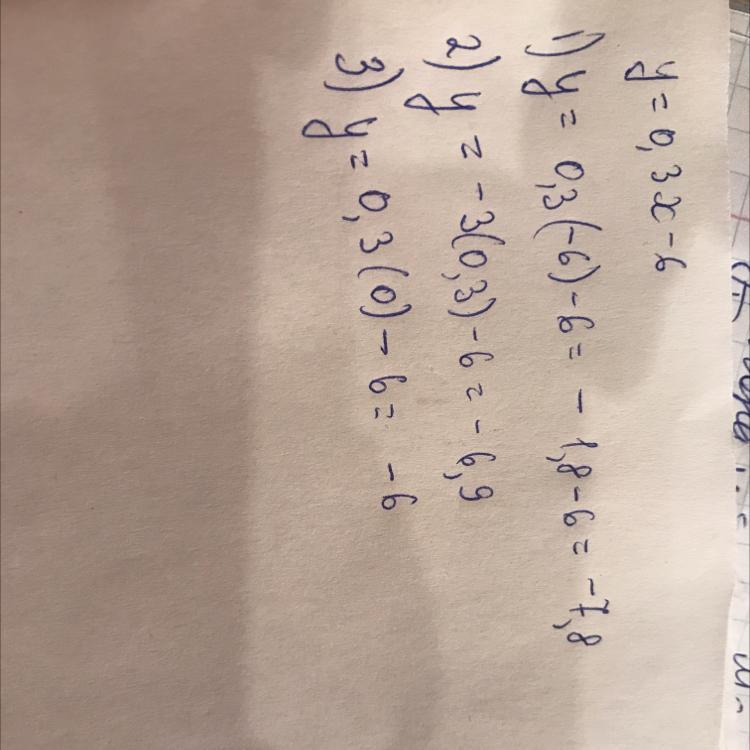 y = 0,3x - 6
1) y = 0,3(-6) - 6 = - 1,8 - 6 = -7,8
2) y = -3(0,3) - 6 = - 6,9
3) y = 0,3(0) - 6 = -6